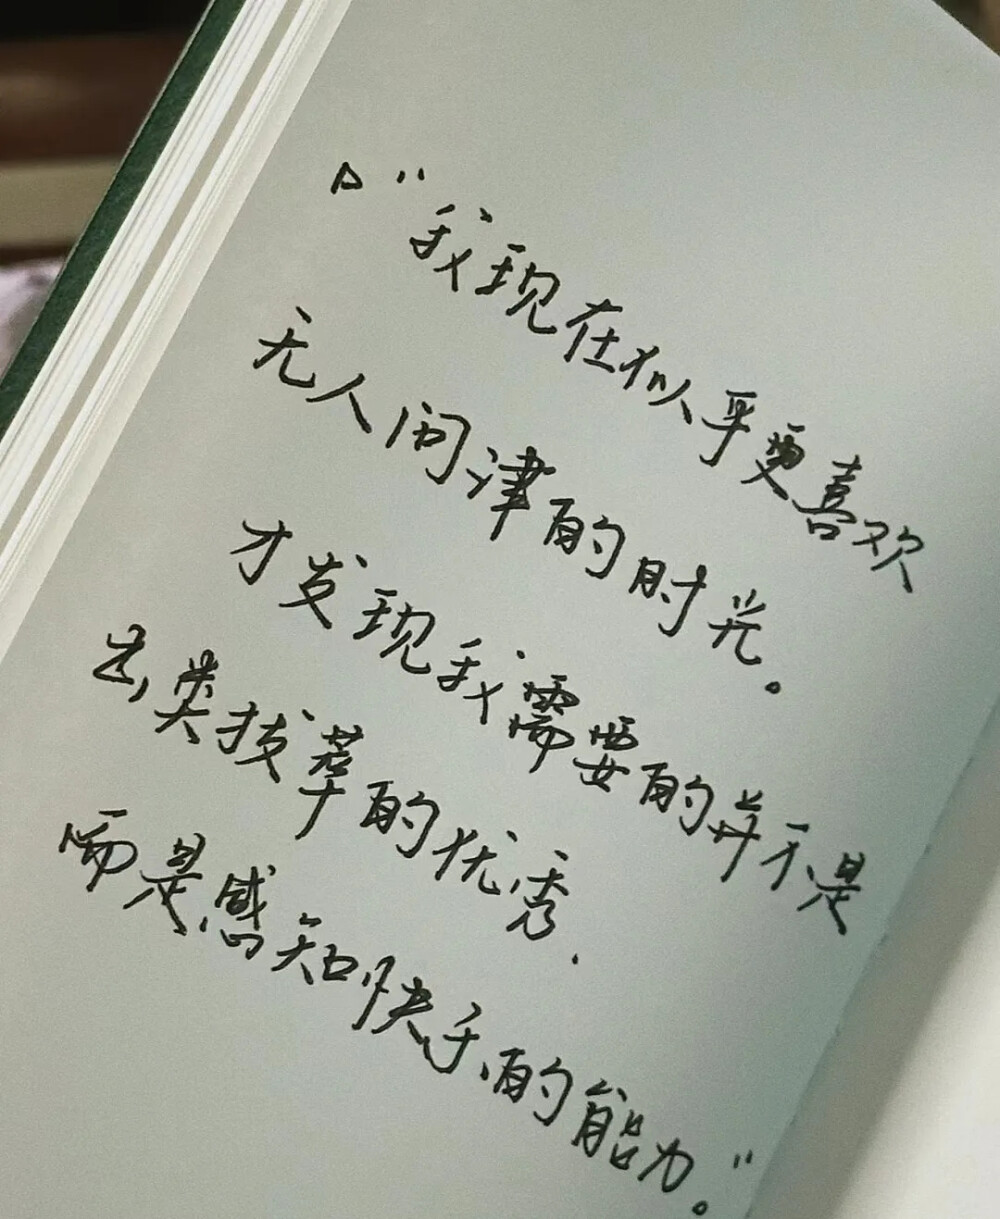 “我现在似乎更喜欢
无人问津的时光。
才发现我需要的并不是
出类拔萃的优秀,
而是感知快乐的能力。”